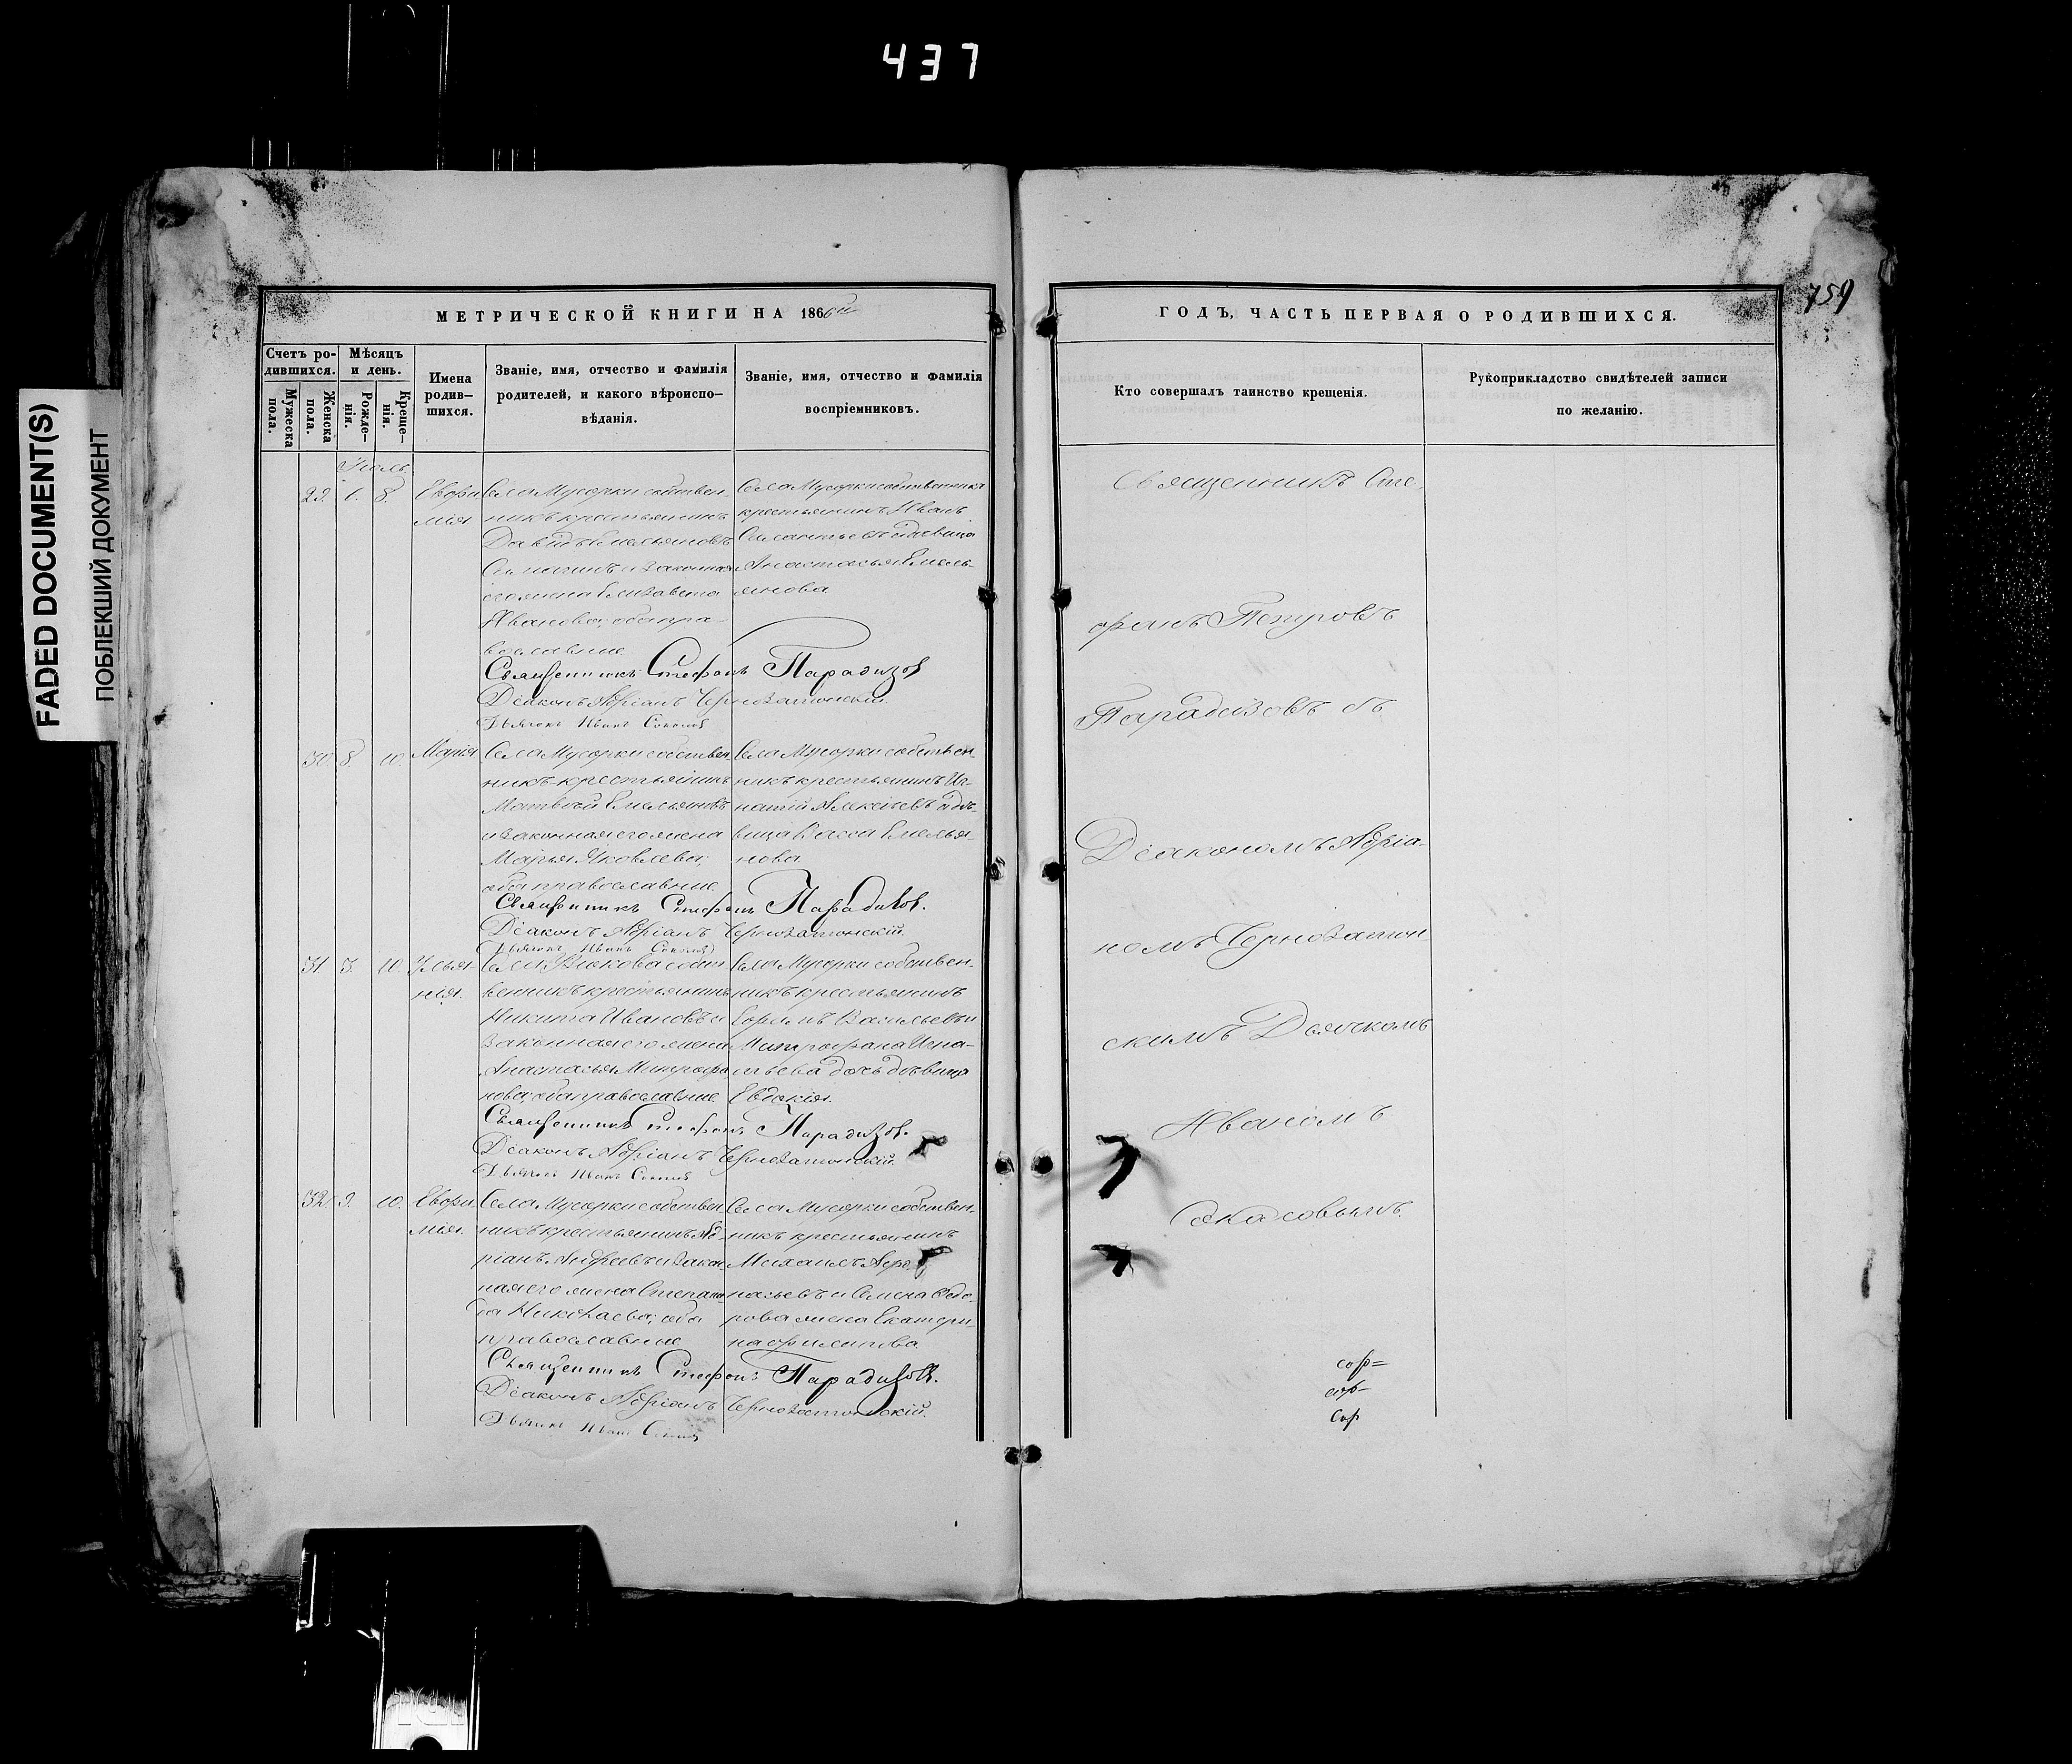 437
FADED DOCUMENT(S)
ПОБЛЕКШИЙ ДОКУМЕНТ
759
МЕТРИЧЕСКОЙ КНИГИ НА 1866й
Счетъ ро-
дившихся.
Мужеска
пола.
Женска
пола.
Мѣсяцъ
и день.
Рожде-
нія.
Креще-
нія.
Имена
родив-
шихся.
Званіе, имя, отчество и фамилія
родителей, и какого вѣроиспо-
вѣданія.
Званіе, имя, отчество и фамилія
воспріемниковъ.
29. 8. Евфи
мія
Села Мусорки собствен-
никъ крестьянинъ
Давидъ Емельяновъ
и законная
его жена Елизавета
Иванова; оба пра-
вославние
Села Мусорки собственникъ
крестьянинъ Иванъ
дѣвица
Анастасья Емель-
янова
Священникъ Стефанъ Парадизов
Діаконъ Адріанъ Чернозатонскій.
Дьячекъ Иванъ
30. 8. 10. Марія
Села Мусорки собствен-
никъ крестьянинъ
Матвѣй Емельяновъ
и законная его жена
Марья Яковлева;
оба православние
Села Мусорки собствен-
никъ крестьянинъ Иг-
натій Алексѣевъ и дѣ-
вица Васса Емелья-
нова
Священникъ Стефанъ Парадизов.
Діаконъ Адріанъ Чернозатонскій.
Дьячекъ Иванъ
31 10. Улья-
нія.
Села собст
венникъ крестьянинъ
Никита Ивановъ и
законная его жена
Анастасья Митрофа
нова; оба православние
Села Мусорки собствен-
никъ крестьянинъ
Ефимъ Васильевъ и
Митрофана Игна-
тьева дочь дѣвица
Евдокія.
Священникъ Стефанъ Парадизов.
Діаконъ Адріанъ Чернозатонскій.
Дьячекъ Иванъ
32. 9. 10. Евфи
мія.
Села Мусорки собствен
никъ крестьянинъ Ад-
ріанъ Андреевъ и закон-
ная его жена Степани-
да Николаева; оба
православные
Села Мусорки собствен-
никъ крестьянинъ
Михаилъ
и Семена Ѳедо-
рова жена Екатери-
на Филипова
Священникъ Стефанъ Парадизовъ.
Діаконъ Адріанъ Чернозатонскій.
Дьячекъ Иванъ
ГОДЪ, ЧАСТЬ ПЕРВАЯ О РОДИВШИХСЯ.
Кто совершалъ таинство крещенія.
Рукоприкладство свидѣтелей записи
по желанію.
Священникъ Сте-
фанъ Петровъ
Парадизовъ съ
Діакономъ Адріа-
номъ Чернозатон-
скимъ Дьячкомъ
Иваномъ